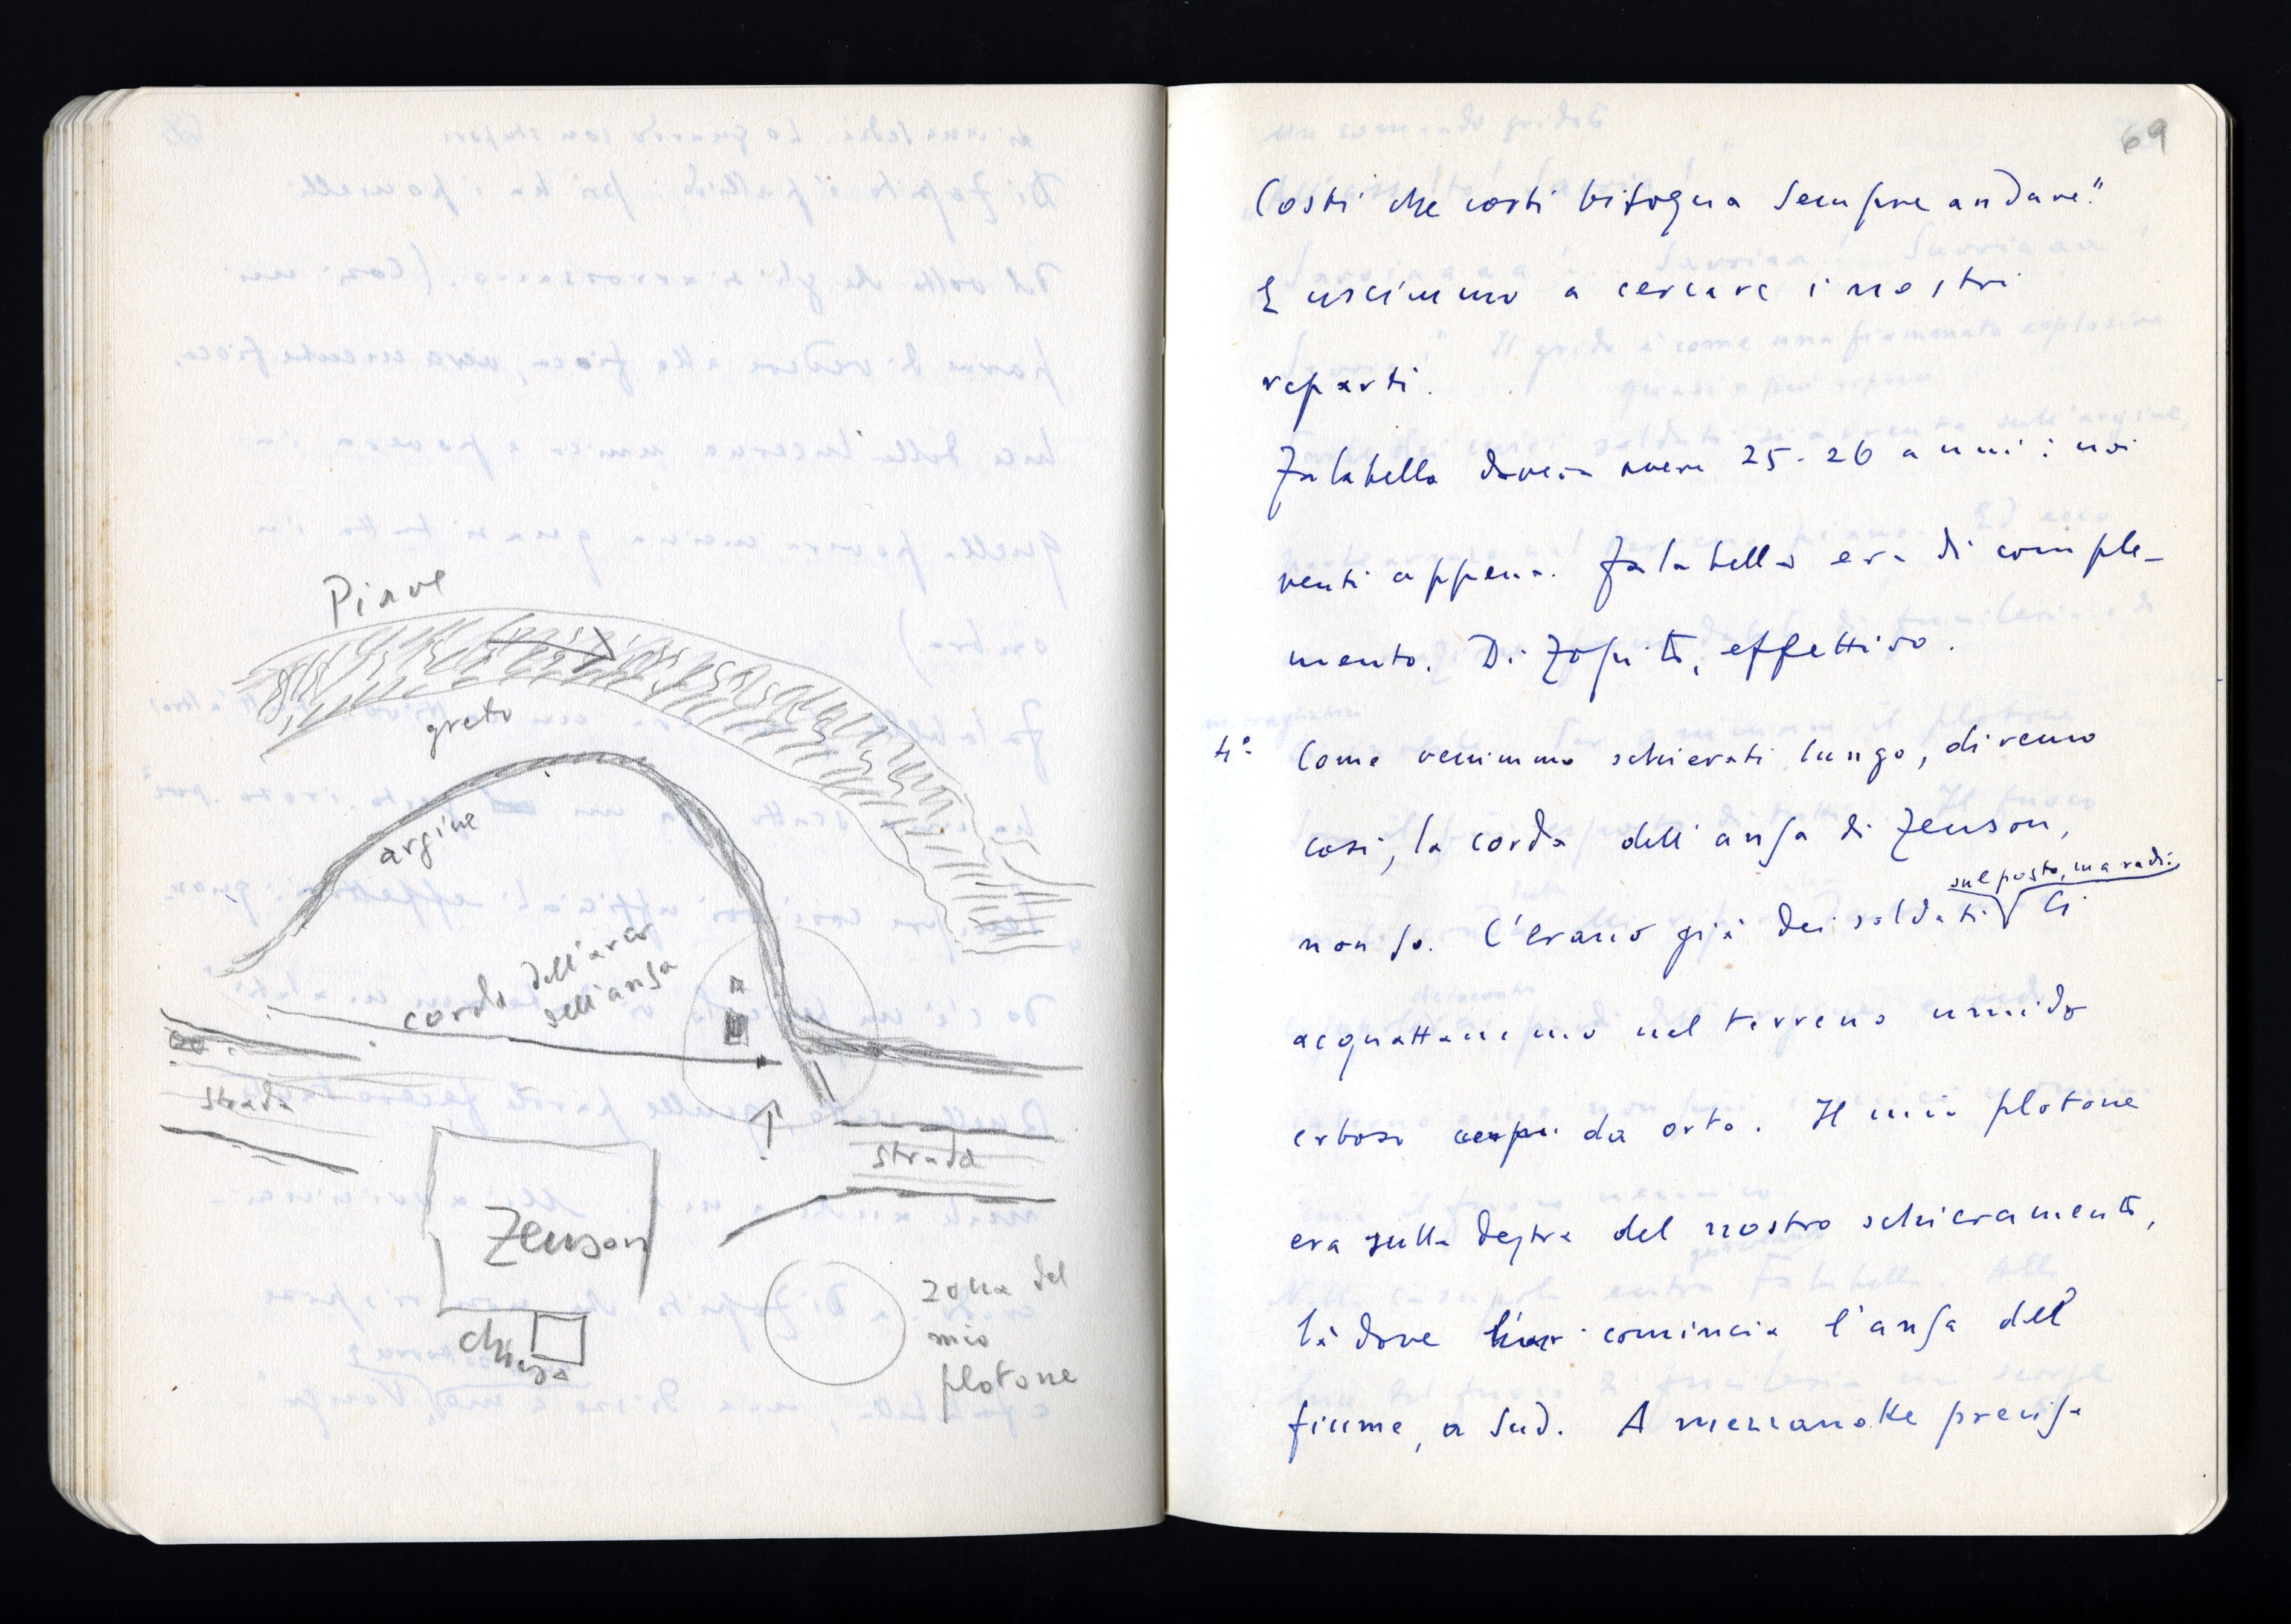 Piave
greto
argine
corda dell'arco
dell'ansa
strada
strada
Zenson
chiesa
zona del
mio
plotone
69
Costi che costi bisogna sempre andare."
E uscimmo a cercare i nostri
reparti.
Falabella doveva avere 25-26 anni: noi
venti appena. Falabella era di comple-
mento. Di Zopito, effettivo.
4° Come venimmo schierati lungo, diremo
così, la corda dell'ansa di Zenson,
sul posto, ma radi.
non so. C'erano già dei soldati Ci
acquattammo nel terreno umido
erboso da orto. Il mio plotone
era sulla destra del nostro schieramento,
là dove comincia l'ansa del
fiume, a sud. A mezzanotte precisa